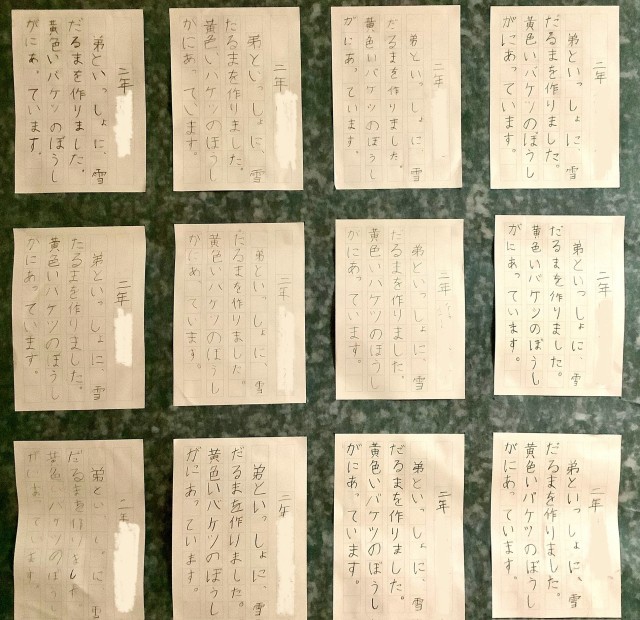 二年
弟といっしょに、雪
だるまを作りました。
黄色いバケツのぼうし
がにあっています。
二年
弟といっしょに、雪
だるまを作りました。
黄色いバケツのぼうし
がにあっています。
二年
弟といっしょに、雪
だるまを作りました。
黄色いバケツのぼうし
がにあっています。
二年
弟といっしょに、雪
だるまを作りました。
黄色いバケツのぼうし
がにあっています。
二年
弟といっしょに、雪
だるまを作りました。
黄色いバケツのぼうし
がにあっています。
二年
弟といっしょに、雪
だるまを作りました。
黄色いバケツのぼうし
がにあっています。
二年
弟といっしょに、雪
だるまを作りました。
黄色いバケツのぼうし
がにあっています。
二年
弟といっしょに、雪
だるまを作りました。
黄色いバケツのぼうし
がにあっています。
二年
弟といっしょに、雪
だるまを作りました。
黄色いバケツのぼうし
がにあっています。
二年
弟といっしょに、雪
だるまを作りました。
黄色いバケツのぼうし
がにあっています。
二年
弟といっしょに、雪
だるまを作りました。
黄色いバケツのぼうし
がにあっています。
二年
弟といっしょに、雪
だるまを作りました。
黄色いバケツのぼうし
がにあっています。